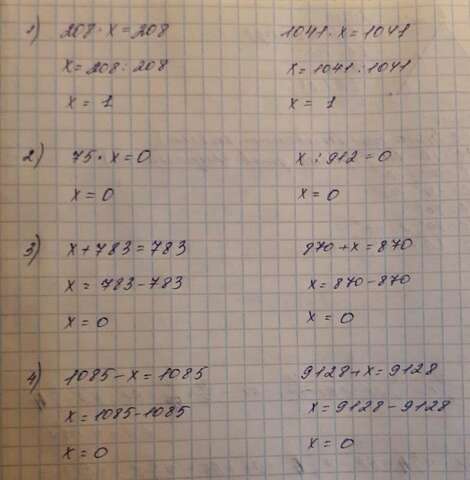 1) 208 · x = 208
x = 208 : 208
x = 1
1041 · x = 1041
x = 1041 : 1041
x = 1
2) 75 · x = 0
x = 0
x : 912 = 0
x = 0
3) x + 783 = 783
x = 783 - 783
x = 0
870 + x = 870
x = 870 - 870
x = 0
4) 1085 - x = 1085
x = 1085 - 1085
x = 0
9128 + x = 9128
x = 9128 - 9128
x = 0